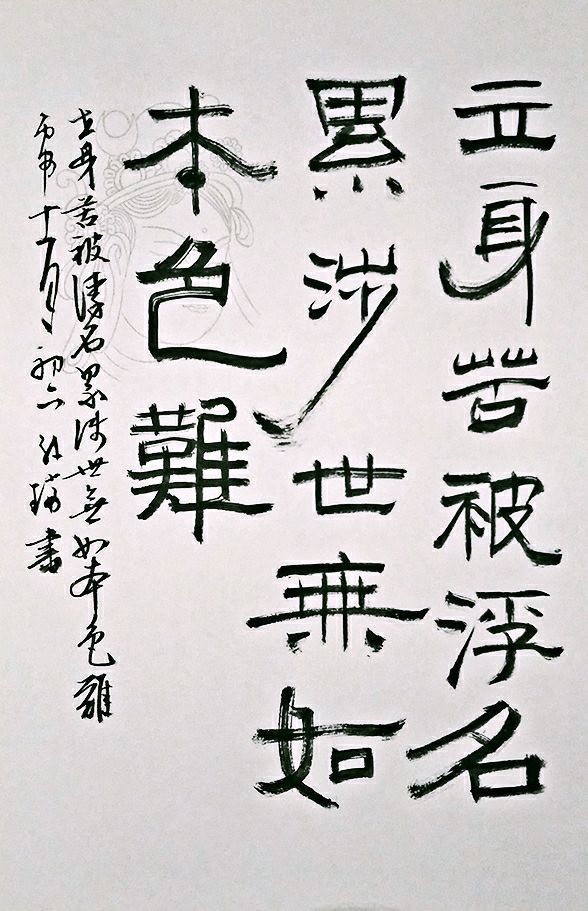 立身苦被浮名
累涉世無如
本色難
立身苦被浮名累涉世無如本色難
丙申十一月初六
書